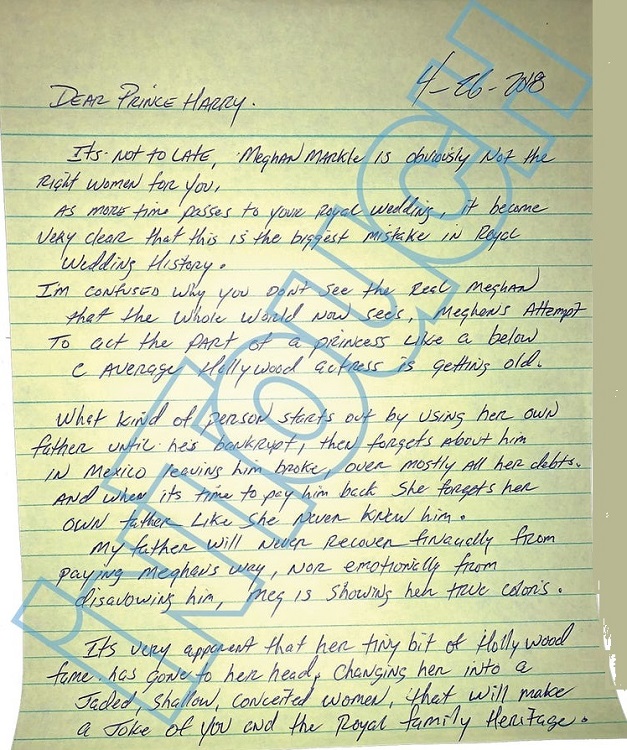 4-26-2018
DEAR PRINCE HARRY.
Its not to LATE, Meghan Markle is obviously Not the
Right women for you.
As more time passes to your Royal Wedding, it became
Very clear that this is the biggest mistake in Royal
Wedding History.
I'm confused why you don't see the Real Meghan
that the whole world now sees, Meghan's Attempt
To act the part of a princess like a below
C Average Hollywood actress is getting old.
What kind of person starts out by using her own
father until he's bankrupt, then forgets about him
in Mexico leaving him broke, over mostly all her debts.
And when its time to pay him back She forgets her
own father like She Never Knew him.
My father will never recover finacially from
paying Meghans way, Nor emotionally from
disavowing him, Meg is showing her true colors.
It's very apparent that her tiny bit of Hollywood
fame has gone to her head, Changing her into a
Jaded, Shallow, conceited women, that will make
a Joke of you and the Royal family Heritage.
INTOUCH